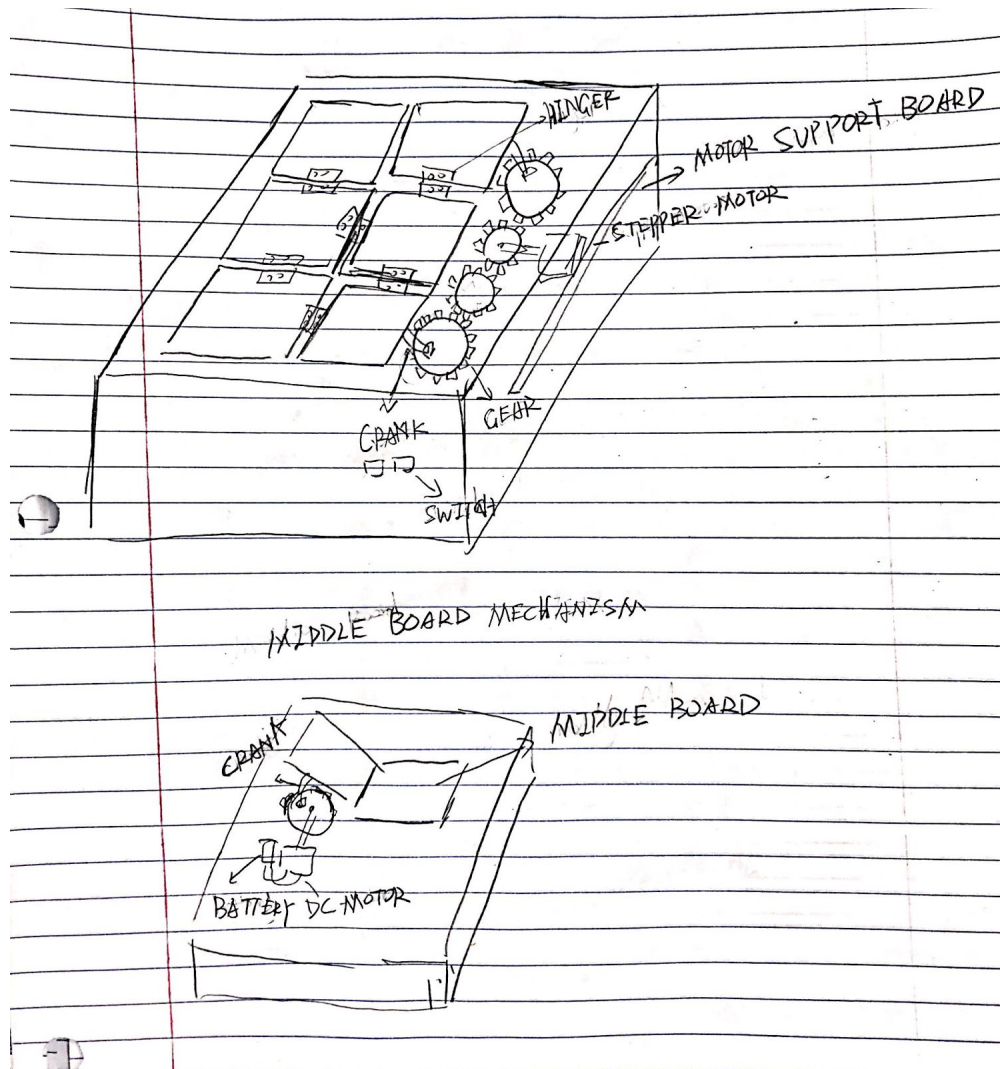 HINGER
MOTOR SUPPORT BOARD
STEPPER MOTOR
GEAR
CRANK
SWITCH
MIDDLE BOARD MECHANISM
MIDDLE BOARD
CRANK
BATTERY DC MOTOR